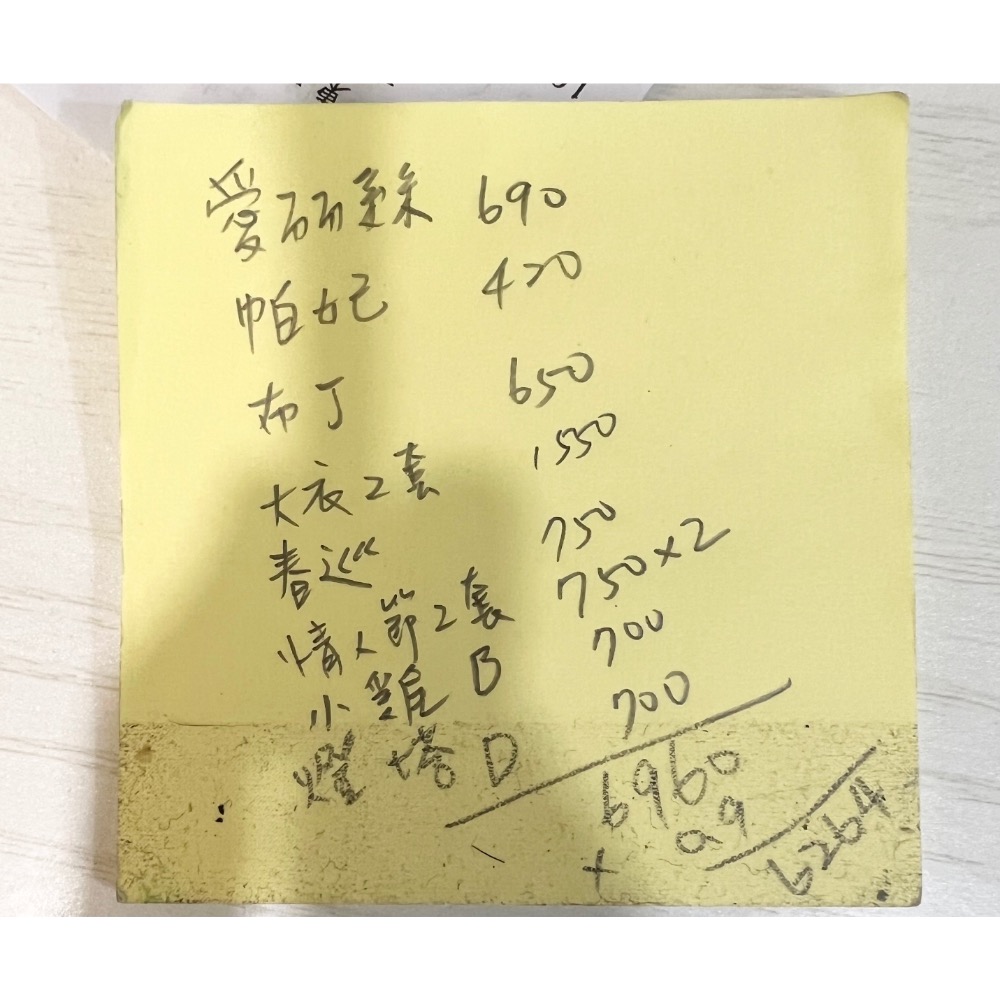 愛丽絲 690
帕妃 420
布丁 650
大衣2套 1550
春巡 750
情人節2套 750×2
小雞 B 700
燈塔 D 700
6960
× 0.9
6264